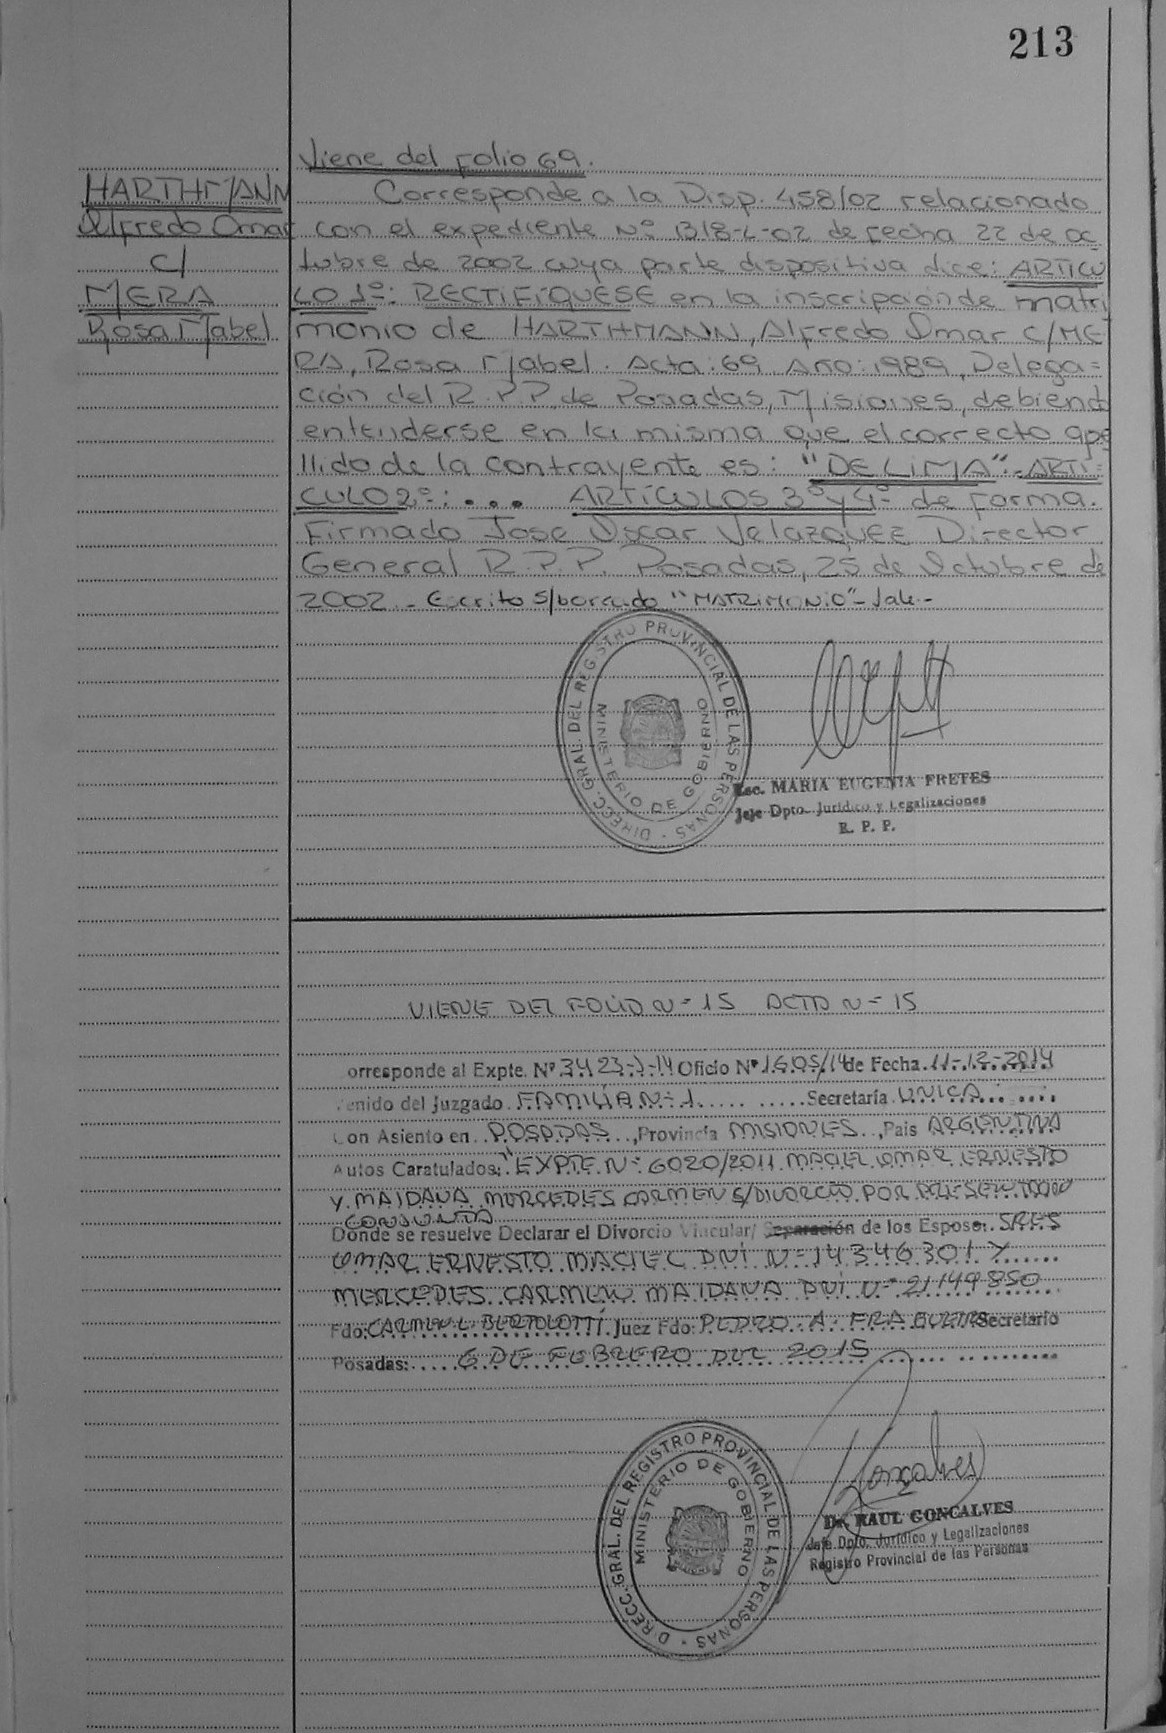 213
Viene del Folio 69.
HARTHMANN
Alfredo Omar
c/
MERA
Rosa Mabel
Corresponde a la Disp. 458/02 relacionado
con el expediente Nº 1318-L-02 de fecha 22 de oc
tubre de 2002 cuya parte dispositiva dice: ARTICU
LO 1º: RECTIFÍQUESE en la inscripción de matri
monio de HARTHMANN, Alfredo Omar c/ME
RA, Rosa Mabel. Acta: 69 Año: 1989, Delega=
ción del R.P.P. de Posadas, Misiones, debiendo
entenderse en la misma que el correcto ape
llido de la contrayente es: "DE LIMA"-ARTÍ=
CULO 2º:... ARTÍCULOS 3º y 4º de forma.
Firmado Jose Oscar Velazquez Director
General R.P.P. Posadas, 25 de Octubre de
2002.- Escrito s/borrado "MATRIMONIO"- Vale-
DIRECC. GRAL. DEL REGISTRO PROVINCIAL DE LAS PERSONAS
MINISTERIO DE GOBIERNO
Esc. MARIA EUGENIA FRETES
Jefe Dpto. Jurídico y Legalizaciones
R. P. P.
VIENE DEL FOLIO N=15 ACTA N=15
orresponde al Expte. Nº 3423-J-14 Oficio Nº 1605/14 de Fecha 11-12-2014
enido del Juzgado FAMILIA N=1 Secretaría UNICA
Con Asiento en POSADAS, Provincia MISIONES, País ARGENTINA
Autos Caratulados: "EXPTE N= 6020/2011 MACIEL OMAR ERNESTO
Y MAIDANA MERCEDES CARMEN S/DIVORCIO POR PRESENTACION
CONJUNTA
Donde se resuelve Declarar el Divorcio Vincular/ Separación de los Esposos: SRES
OMAR ERNESTO MACIEL DNI N=14346301 Y
MERCEDES CARMEN MAIDANA DNI N=21149850
Fdo: CARMEN L. BERTOLOTTI Juez Fdo: PEDRO A. FRA Secretario
Posadas: 6 DE FEBRERO DEL 2015
DIRECC. GRAL. DEL REGISTRO PROVINCIAL DE LAS PERSONAS
MINISTERIO DE GOBIERNO
Gonçalves
Dr. RAUL GONCALVES
Jefe Dpto. Jurídico y Legalizaciones
Registro Provincial de las Personas